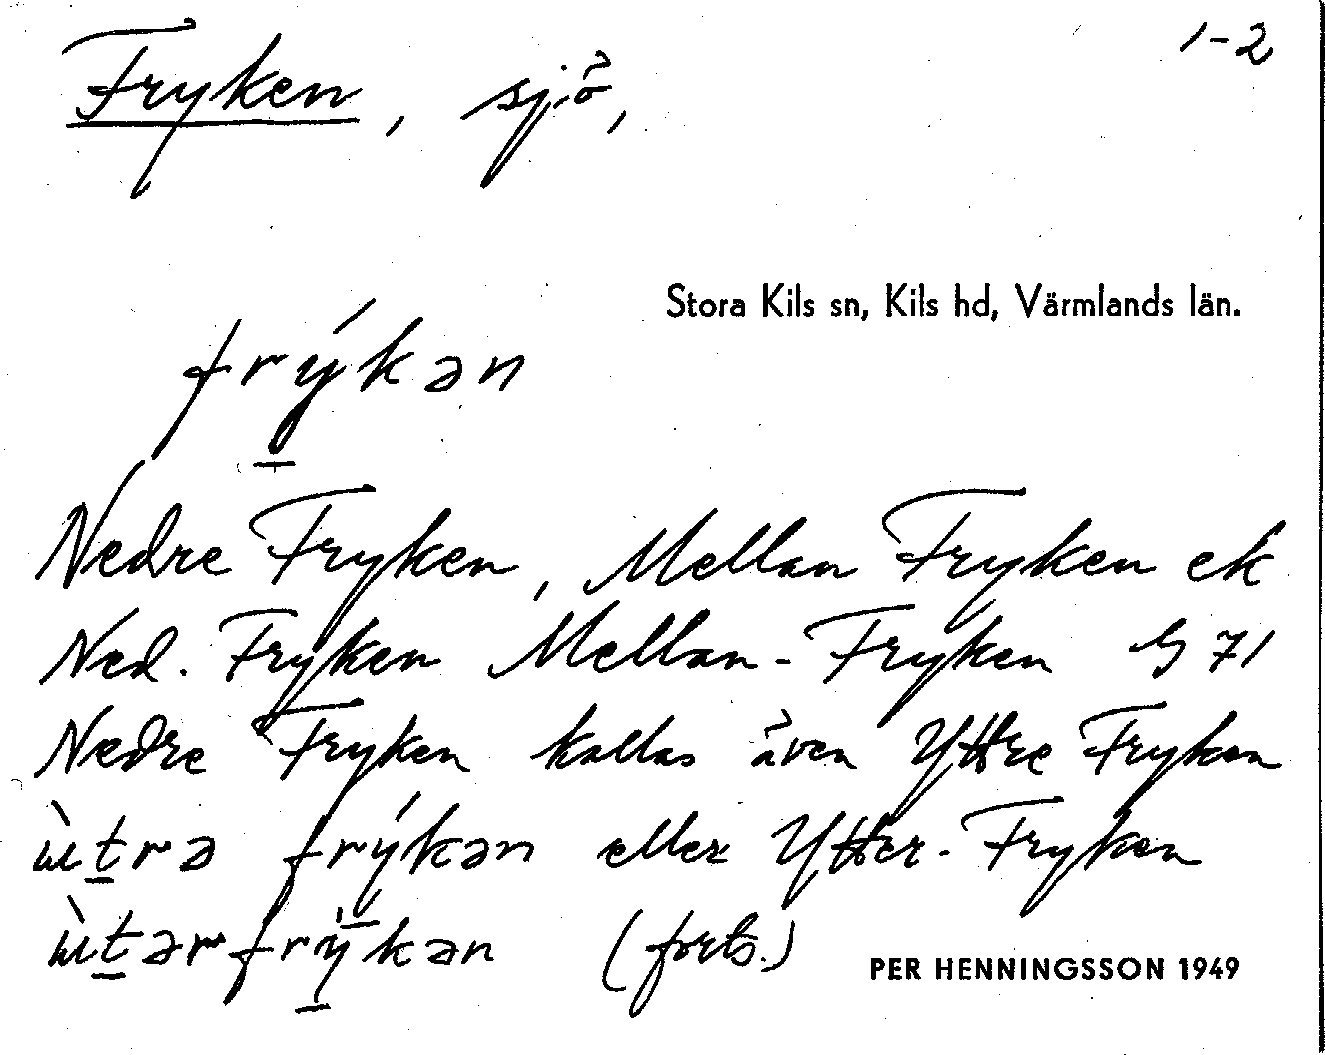 1-2
Fryken, sjö,
Stora Kils sn, Kils hd, Värmlands län.
frýkən
Nedre Fryken, Mellan Fryken ek
Ned. Fryken Mellan-Fryken G 71
Nedre Fryken kallas även Yttre Fryken
ùtrə frýkən eller Ytter-Fryken
ùtərfrỳkən (forts.)
PER HENNINGSSON 1949